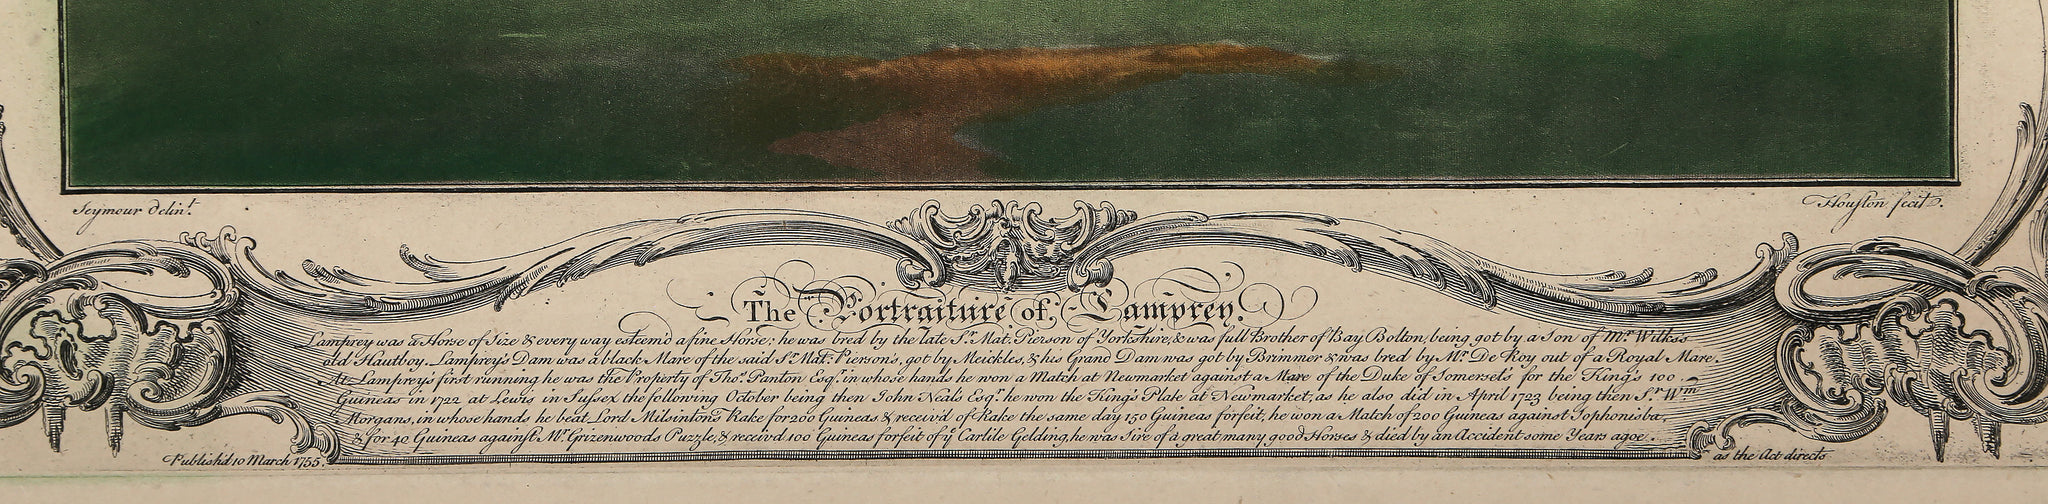 Seymour delin.t
Houston fecit.
The Portraiture of Lamprey.
Lamprey was a Horse of Size & every way esteem'd a fine Horse; he was bred by the late S.r Mat: Pierson of Yorkshire, & was full Brother of Bay Bolton, being got by a Son of M.r Wilks's
old Hautboy. Lamprey's Dam was a black Mare of the said S.r Mat: Pierson's, got by Meickles, & his Grand Dam was got by Brimmer & was bred by M.r De Roy out of a Royal Mare.
At Lamprey's first running he was the Property of Tho.s Panton Esq.r in whose hands he won a Match at Newmarket against a Mare of the Duke of Somerset's for the King's 100
Guineas in 1722 at Lewis in Sussex the following October being then John Neal's Esq.r he won the King's Plate at Newmarket, as he also did in April 1723 being then S.r W.m
Morgans, in whose hands he beat Lord Milsinton's Rake for 200 Guineas & receiv'd of Rake the same day 150 Guineas forfeit, he won a Match of 200 Guineas against Sophonisba,
& for 40 Guineas against M.r Grizenwoods Puzzle, & receiv'd 100 Guineas forfeit of y.e Carlile Gelding, he was Sire of a great many good Horses & died by an Accident some Years agoe.
Publish'd 10 March 1755.
as the Act directs